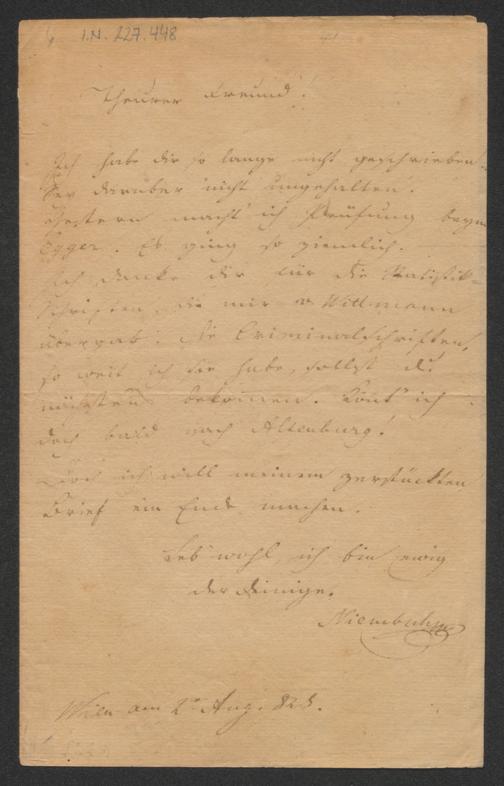 I.N. 227.448
Theurer Freund!
Ich habe dir so lange nicht geschrieben.
Sey darüber nicht ungehalten.
Gestern macht' ich Prüfung beym
Egger. Es ging so ziemlich.
Ich danke dir für die Statistik-
schriften, die mir Wittmann
übergab. Die Criminalschriften,
so weit ich sie habe, sollst du
nächstens bekommen. Könnt' ich
doch bald nach Altenburg!
Doch ich will meinem zerstückten
Brief ein Ende machen.
Leb' wohl, ich bin ewig
der Deinige.
Niembsch
Wien am Aug. 825.